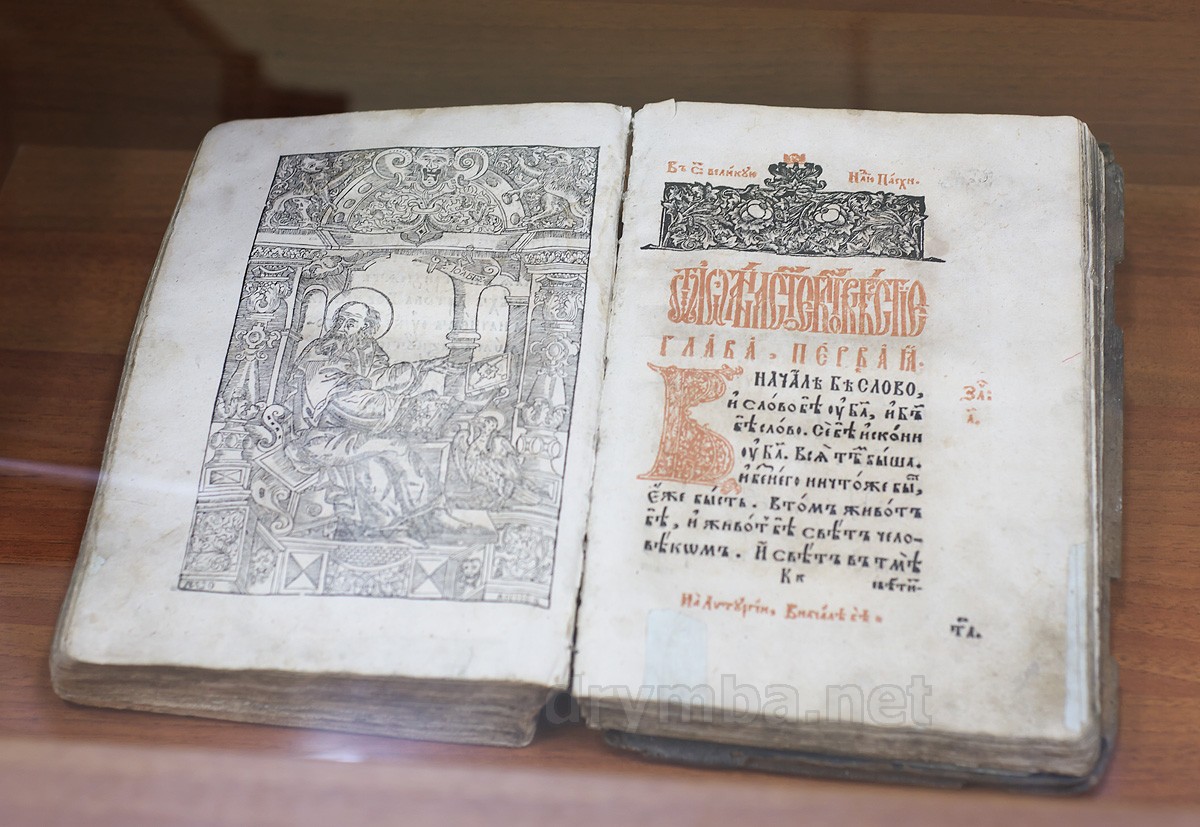 Въ С҃ великую Н҃лю Па́схи.
ГЛАВА̀, ПЕ́РВАꙖ.
В НАЧА́ЛѢ БѢ̀ СЛО́ВО,
и҆ сло́во бѣ̀ ᲂу҆ бг҃а, и҆ бг҃ъ
бѣ̀ сло́во. Се́й бѣ̀ и҆скони
ᲂу҆ бг҃а. Всѧ̀ тѣ́мъ бы́ша.
и҆ без̾ него̀ ничто́же бы́сть,
е҆́же бы́сть. В то́мъ живо́тъ
бѣ̀, и҆ живо́тъ бѣ̀ свѣ́тъ чело-
вѣ́кѡмъ. И҆ свѣ́тъ въ тмѣ̀
Кк свѣ́ти-
За҃:
а҃.
На Литургіи, В нача́лѣ бѣ̀
т҃а.
drymba.net